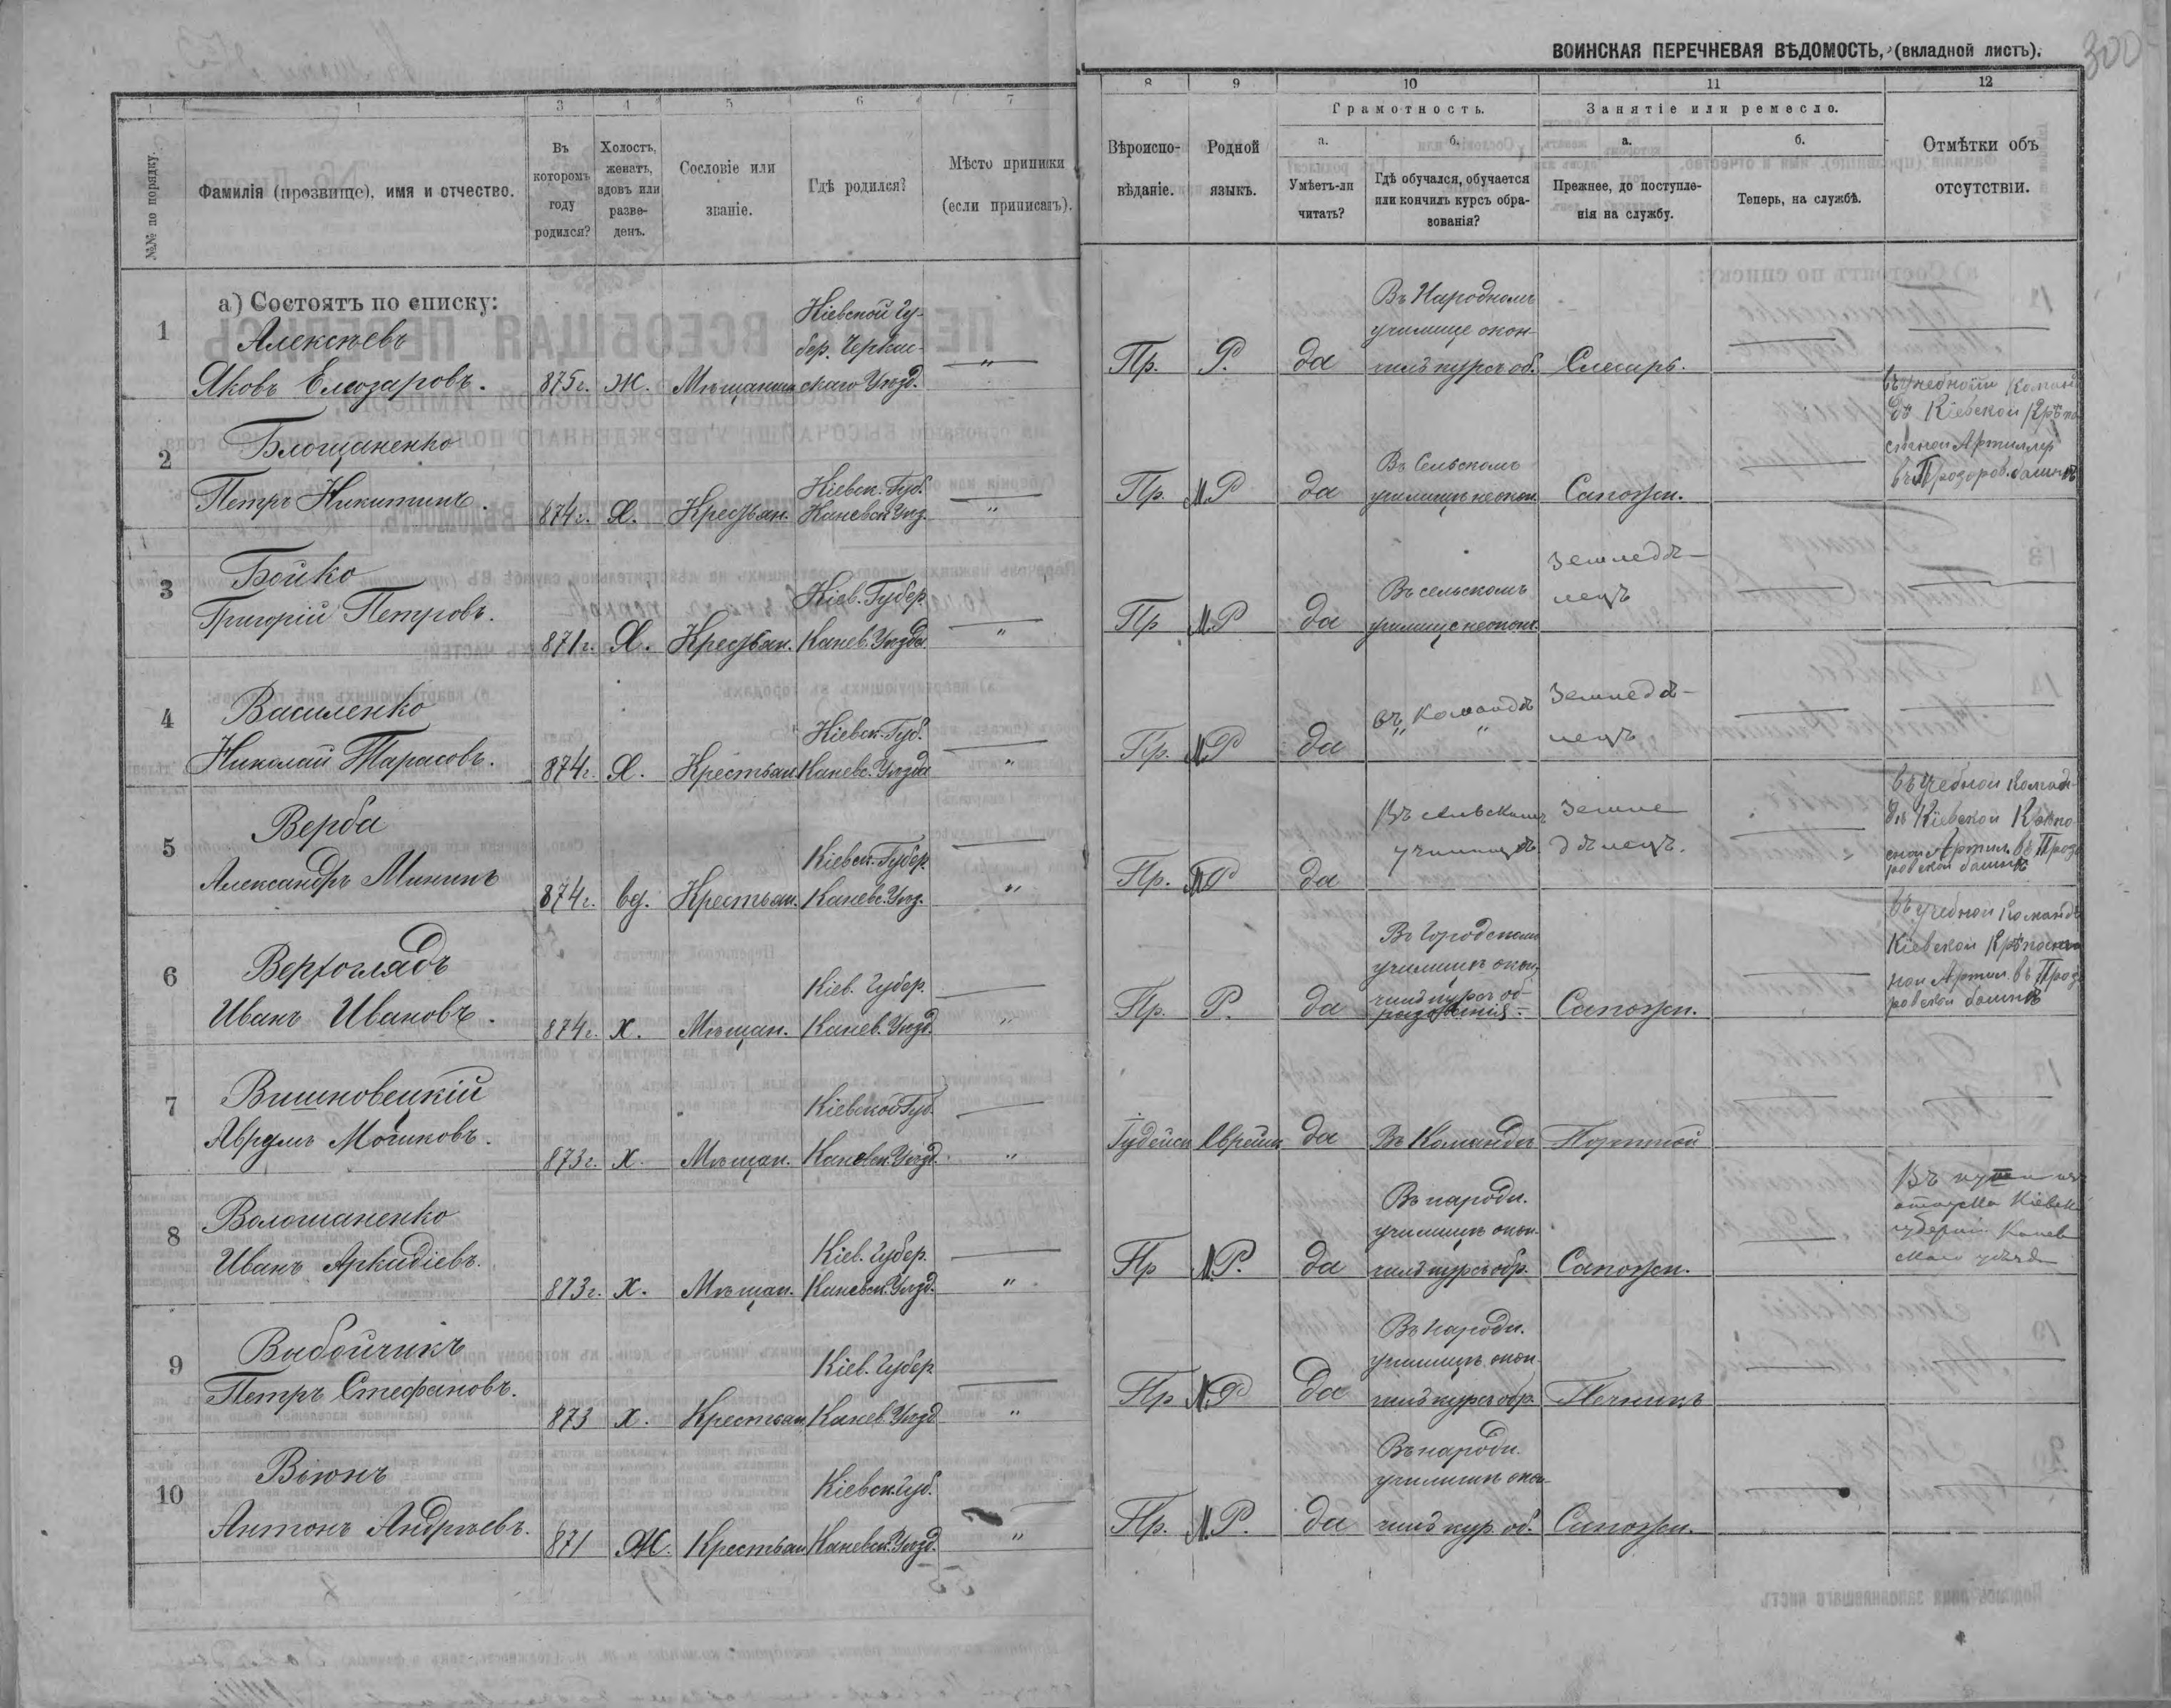 ВОИНСКАЯ ПЕРЕЧНЕВАЯ ВѢДОМОСТЬ, (вкладной листъ).
300
1 1 3 4 5 6 7 8 9 10 11 12
№№ по порядку.
Фамилія (прозвище), имя и отчество.
Въ которомъ году родился?
Холостъ, женатъ, вдовъ или разведенъ.
Сословіе или званіе.
Гдѣ родился?
Мѣсто приписки (если приписанъ).
Вѣроисповѣданіе.
Родной языкъ.
Грамотность.
а. Умѣетъ-ли читать?
б. Гдѣ обучался, обучается или кончилъ курсъ образованія?
Занятіе или ремесло.
а. Прежнее, до поступленія на службу.
б. Теперь, на службѣ.
Отмѣтки объ отсутствіи.
а) Состоятъ по списку:
1
Алексѣевъ
Яковъ Елеозаровъ. 875г. Ж. Мѣщанинъ
Кіевской Гу-
бер. Черкас-
скаго Уѣзд. "
Пр. Р. да
Въ Народномъ
училище окон-
чилъ курсъ об. Слесарь.
2
Блощаненко
Петръ Никитинъ. 874г. Х. Крестьян.
Кіевск. Губ.
Каневск. Уѣз. "
Пр. М.Р да
Въ Сельскомъ
училищѣ неокон. Сапожн.
въ учебной Коман
дѣ Кіевской Крѣпо
стной Артиллер
въ Прозоров. башнѣ
3
Бойко
Григорій Петровъ. 871г. Х. Крестьян.
Кіев. Губер.
Канев. Уѣзда "
Пр М.Р да
Въ сельскомъ
училище неокон.
Земледѣ-
лецъ
4
Василенко
Николай Тарасовъ. 874г. Х. Крестьян
Кіевск. Губ.
Каневс. Уѣзда "
Пр. М.Р да
въ Командѣ
Земледѣ-
лецъ
5
Верба
Александръ Мининъ 874г. вд. Крестьян.
Кіевск. Губер.
Каневс. Уѣз. "
Пр. М.Р да
Въ сельскомъ
училищѣ
Земле
дѣлецъ.
въ учебной Коман
дѣ Кіевской Крѣпо
сной Артил. въ Прозо
ровской башнѣ
6
Верхоглядъ
Иванъ Ивановъ. 874г. Х. Мѣщан.
Кіев. Губер.
Канев. Уѣзд. "
Пр. Р. да
Въ Городскомъ
училищѣ окон-
чилъ курсъ об-
разованія. Сапожн.
въ учебной Командѣ
Кіевской Крѣпост
ной Артил. въ Прозо
ровской башнѣ
7
Вишновецкій
Аврумъ Мошковъ. 873г. Х. Мѣщан.
Кіевской Губ.
Каневск. Уѣзд. "
Іудейск Еврейск да Въ Командѣ Портной
8
Волошаненко
Иванъ Аркадіевъ. 873г. Х. Мѣщан.
Кіев. Губер.
Каневск. Уѣзд. "
Пр М.Р. да
Въ народн.
училищѣ окон-
чилъ курсъ обр. Сапожн.
Въ
отпуска Кіевск
губерніи Канев
скаго уѣзда
9
Выбойчикъ
Петръ Стефановъ. 873 Х. Крестьян
Кіев. Губер
Канев. Уѣзд "
Пр М.Р да
Въ народн.
училищѣ окон-
чилъ курсъ обр. Печникъ
10
Віюнъ
Антонъ Андреевъ. 871 Ж. Крестьян
Кіевск. Губ.
Каневск. Уѣзд. "
Пр. М.Р. да
Въ народн.
училищѣ окон-
чилъ кур. об. Сапожн.